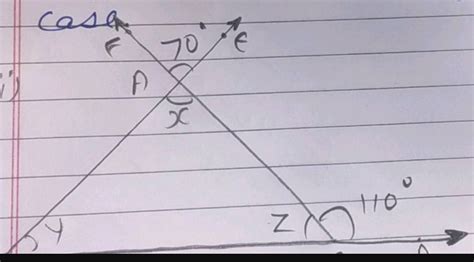 case
F 70° E
A
i)
x
y
z 110°